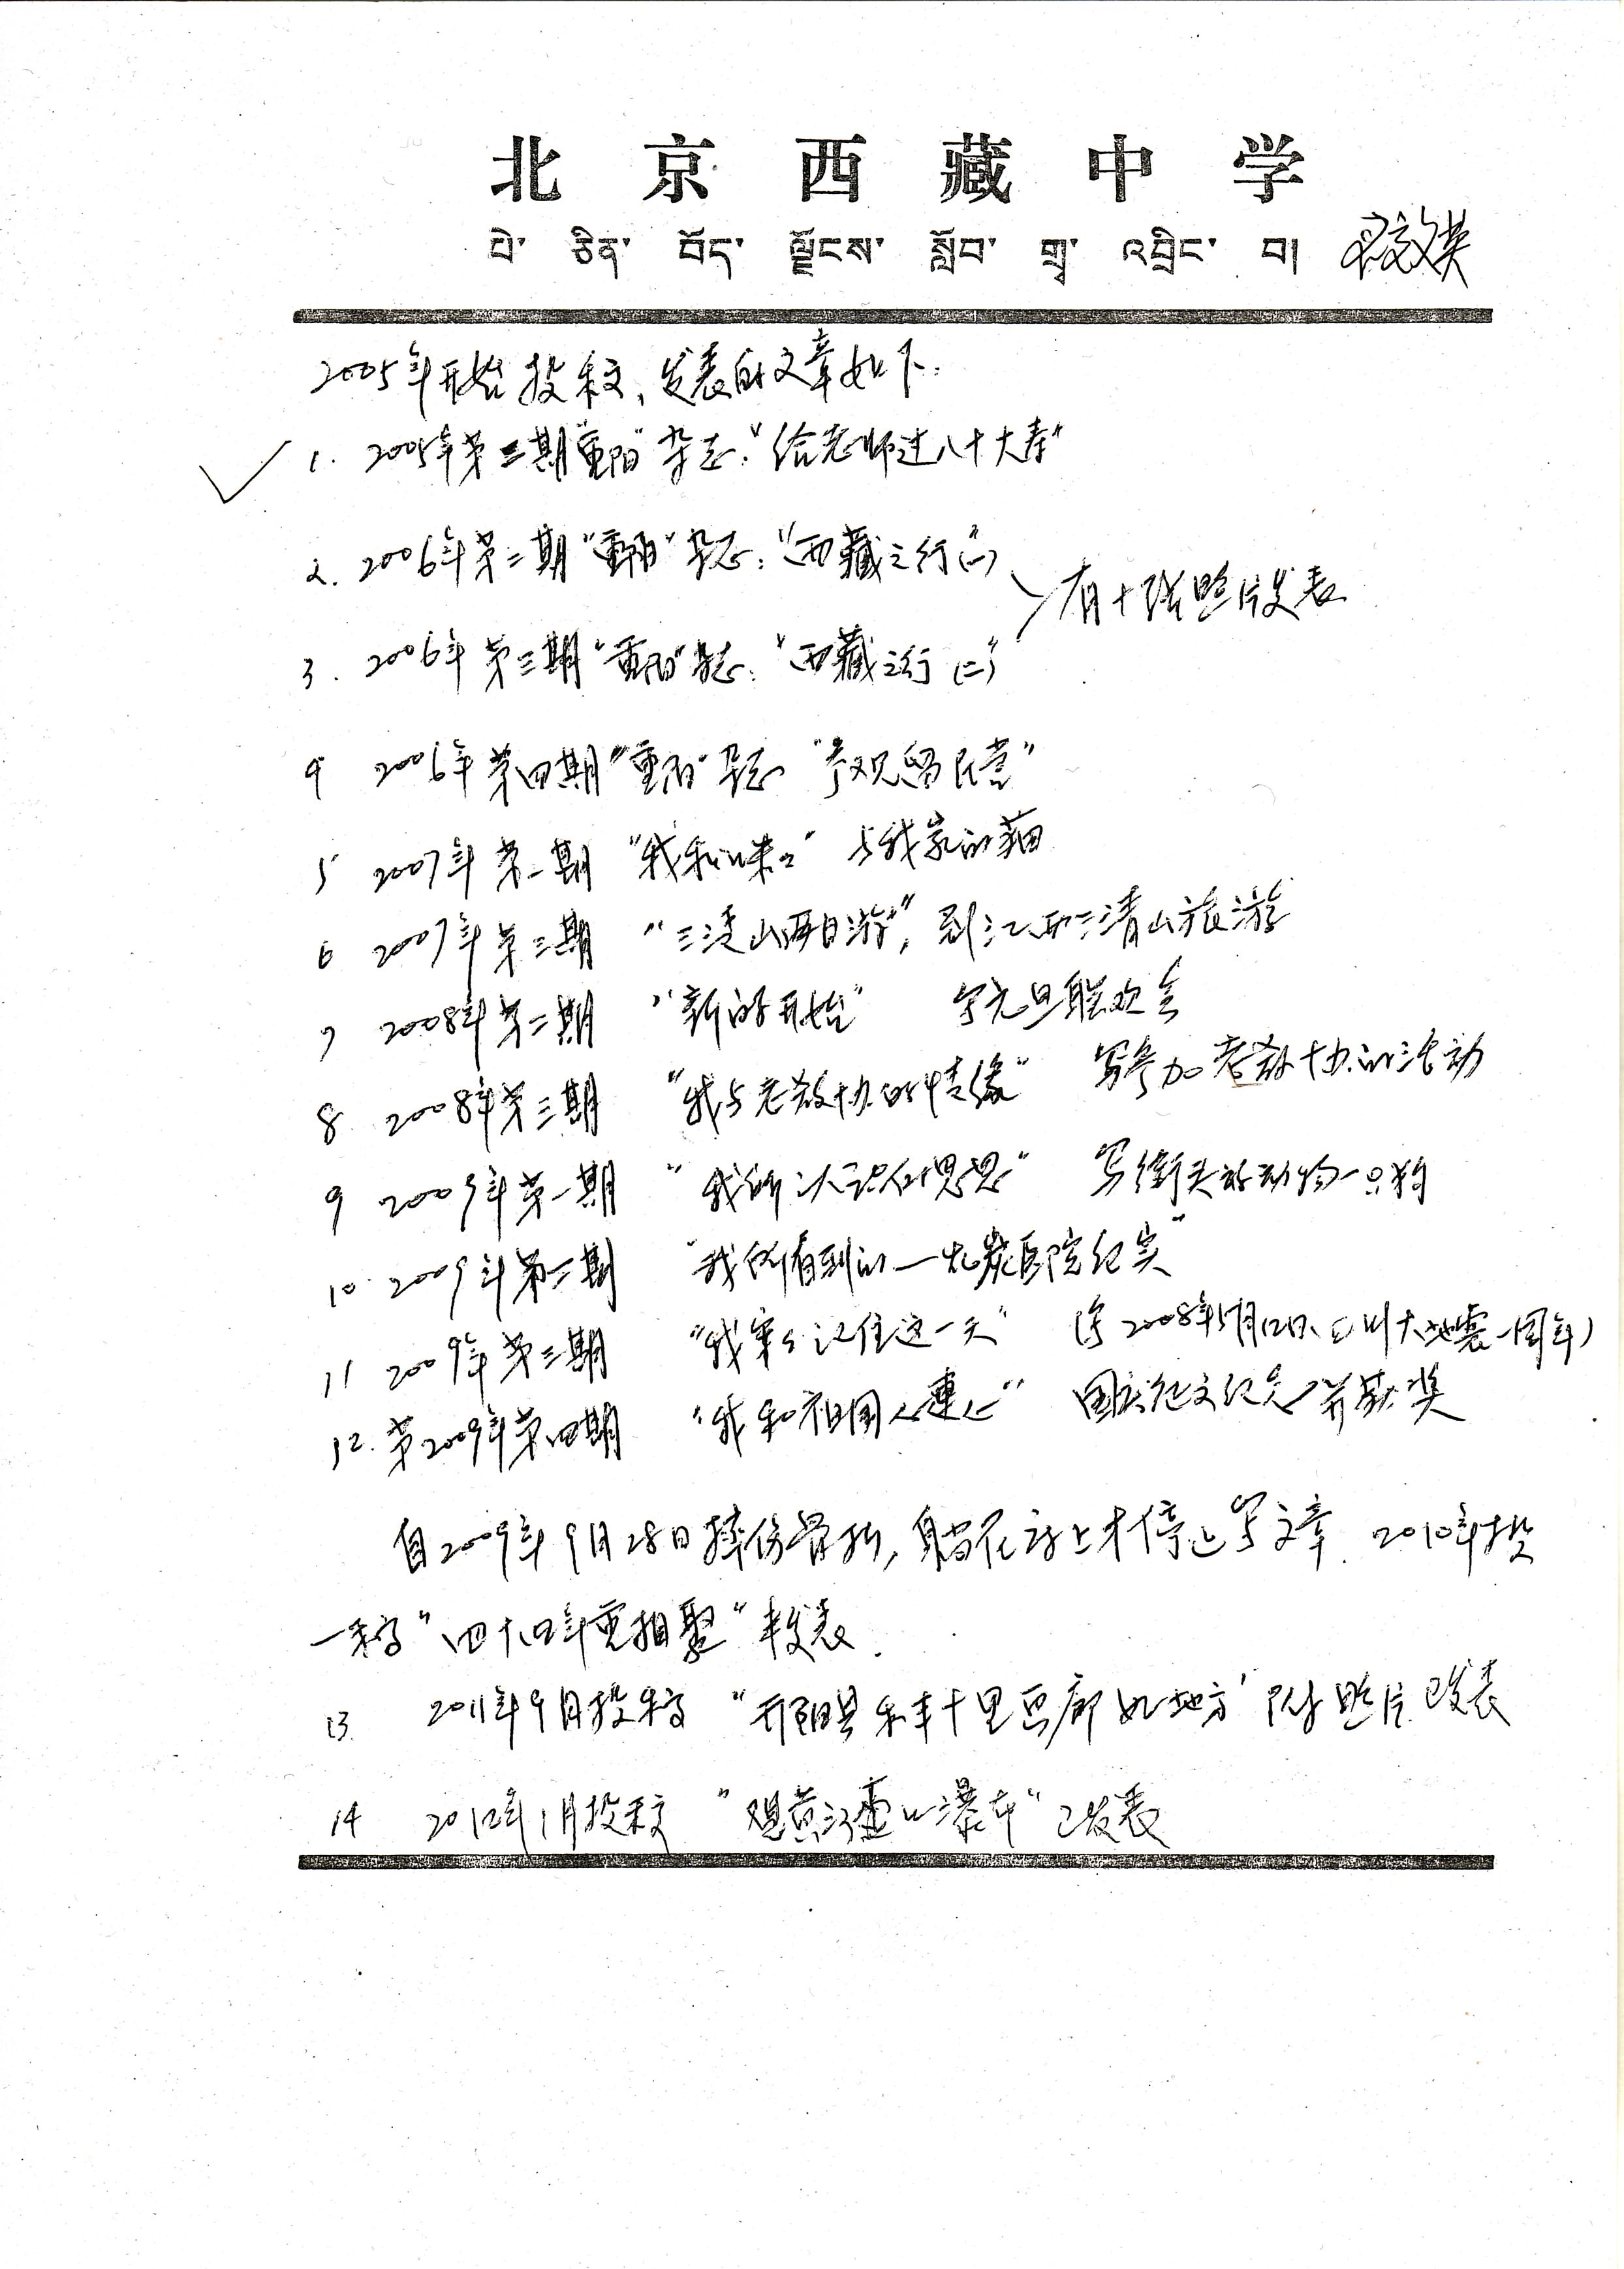 北京西藏中学
པེ་ ཅིན་ བོད་ ལྗོངས་ སློབ་ གྲྭ་ འབྲིང་ བ།
2005年开始投稿、发表的文章如下:
1. 2005年第三期"重阳"杂志:"给老师过八十大寿"
2. 2006年第二期"重阳"杂志:"西藏之行(一)
有十张照片发表
3. 2006年第三期"重阳"杂志:"西藏之行(二)"
4 2006年第四期"重阳"杂志 "参观留民营"
5 2007年第一期 "我和咪咪" 与我家的猫
6 2007年第三期 "三清山两日游", 到江西三清山旅游
7 2008年第二期 "新的开始" 写元旦联欢会
8. 2008年第三期 "我与老教协的情缘" 写参加老教协的活动
9 2009年第一期 "我所认识的思思" 写街头动物一只狗
10. 2009年第二期 "我所看到的一九炭医院纪实"
11 2009年第三期 "我牢牢记住这一天" (写2008年5月12日、四川大地震一周年)
12. 第2009年第四期 "我和祖国心连心" 国庆征文纪念并获奖
自2009年9月28日摔伤骨折,躺在床上才停止写文章. 2010年投
一稿"四十四年重相聚"未发表.
13. 2011年9月投稿 "丹阳县乐丰十里画廊的地方" 附照片已发表
14 2012年1月投稿 "观黄河壶口瀑布"已发表